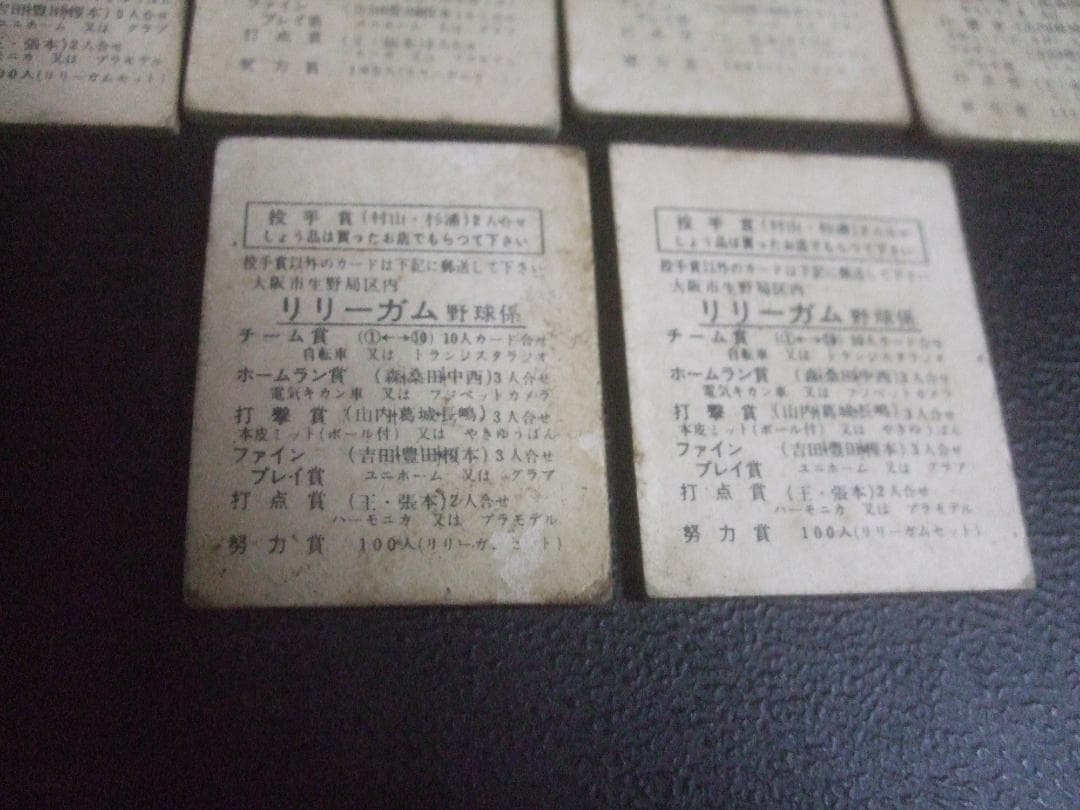 吉田豊田榎本)3人合せ
ユニホーム 又は グラブ
王・張本)2人合せ
ーモニカ 又は プラモデル
00人(リリーガムセット)
ファイン
プレイ賞
打点賞
努力賞
投手賞(村山・杉浦)2人合せ
しょう品は買ったお店でもらつて下さい
投手賞以外のカードは下記に郵送して下さい
大阪市生野局区内
リリーガム野球係
チーム賞 (①←→⑩)10人カード合せ
自転車 又は トランジスタラジオ
ホームラン賞 (森・桑田・中西)3人合せ
電気キカン車 又は フジペットカメラ
打撃賞 (山内・葛城・長嶋)3人合せ
本皮ミット(ボール付) 又は やきゆうばん
ファイン (吉田・豊田・榎本)3人合せ
プレイ賞 ユニホーム 又は グラブ
打点賞 (王・張本)2人合せ
ハーモニカ 又は プラモデル
努力賞 100人(リリーガムセット)
投手賞(村山・杉浦)2人合せ
しょう品は買ったお店でもらつて下さい
投手賞以外のカードは下記に郵送して下さい
大阪市生野局区内
リリーガム野球係
チーム賞 (①←→⑩)10人カード合せ
自転車 又は トランジスタラジオ
ホームラン賞 (森・桑田・中西)3人合せ
電気キカン車 又は フジペットカメラ
打撃賞 (山内・葛城・長嶋)3人合せ
本皮ミット(ボール付) 又は やきゆうばん
ファイン (吉田・豊田・榎本)3人合せ
プレイ賞 ユニホーム 又は グラブ
打点賞 (王・張本)2人合せ
ハーモニカ 又は プラモデル
努力賞 100人(リリーガムセット)